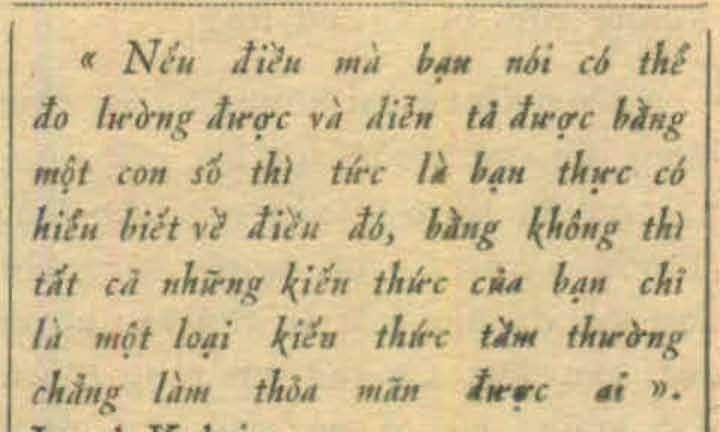 « Nếu điều mà bạn nói có thể
đo lường được và diễn tả được bằng
một con số thì tức là bạn thực có
hiểu biết về điều đó, bằng không thì
tất cả những kiến thức của bạn chỉ
là một loại kiến thức tầm thường
chẳng làm thỏa mãn được ai ».